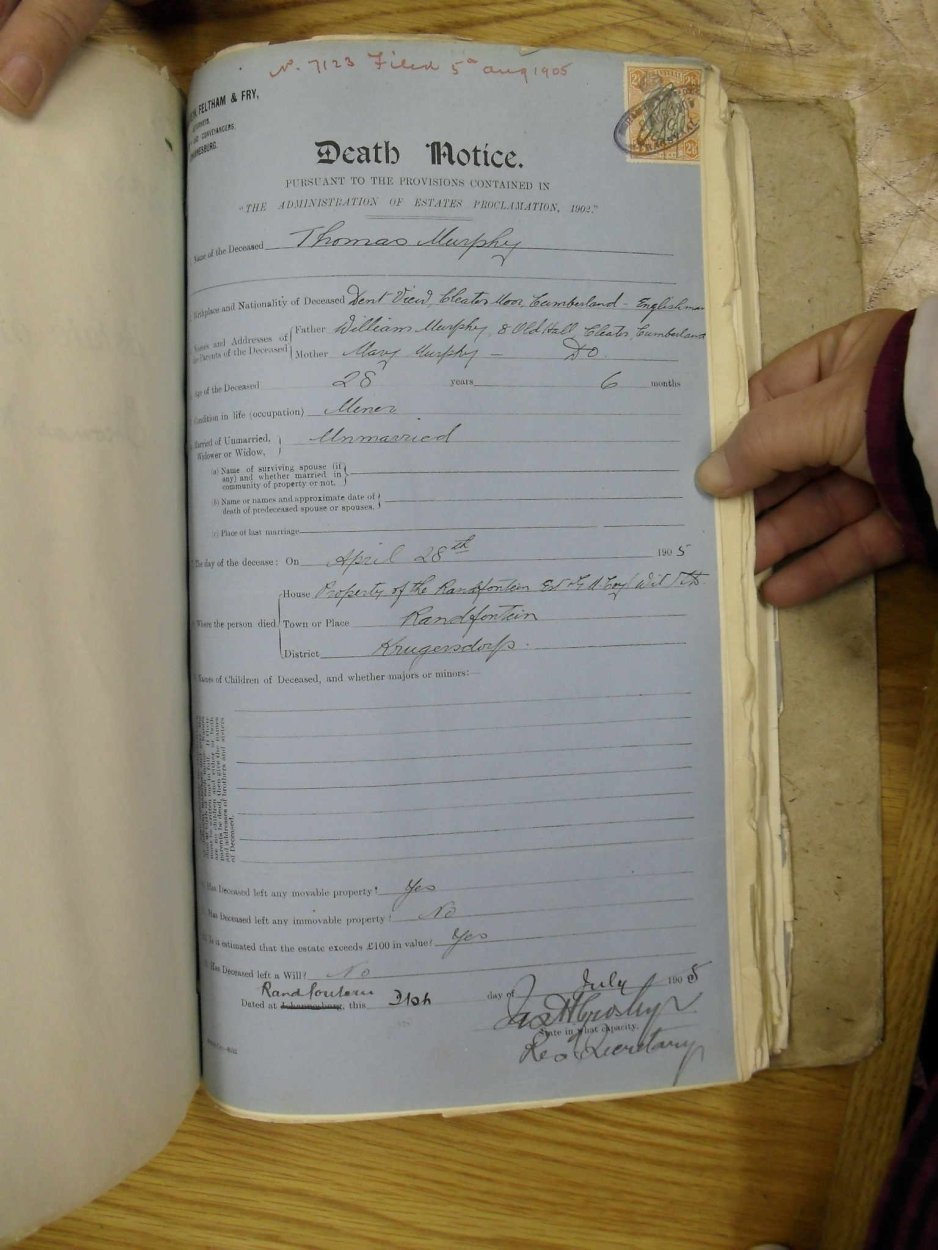 N. 7123 Filed 5th Aug 1905
FELTHAM & FRY,
CONVEYANCERS,
Death Notice.
PURSUANT TO THE PROVISIONS CONTAINED IN
"THE ADMINISTRATION OF ESTATES PROCLAMATION, 1902."
Name of the Deceased Thomas Murphy
Birthplace and Nationality of Deceased Dent View, Cleator Moor, Cumberland - Englishman
Names and Addresses of the Parents of the Deceased
Father William Murphy, 8 Old Hall, Cleator, Cumberland
Mother Mary Murphy - Do.
Age of the Deceased 28 years 6 months
Condition in life (occupation) Miner
Married of Unmarried, Widower or Widow, Unmarried
(a) Name of surviving spouse (if any) and whether married in community of property or not.
(b) Name or names and approximate date of death of predeceased spouse or spouses.
(c) Place of last marriage
The day of the decease: On April 28th 1905
Where the person died
House Property of the Randfontein Est
Town or Place Randfontein
District Krugersdorp.
Names of Children of Deceased, and whether majors or minors:
parents be dead, then give the names
and addresses of brothers and sisters
of Deceased.
Has Deceased left any movable property? Yes
Has Deceased left any immovable property? No
Is it estimated that the estate exceeds £100 in value? Yes
Has Deceased left a Will? No
Randfontein
Dated at Johannesburg, this 31st day of July 1905
Jas H Crosby
State in what capacity.
Secretary